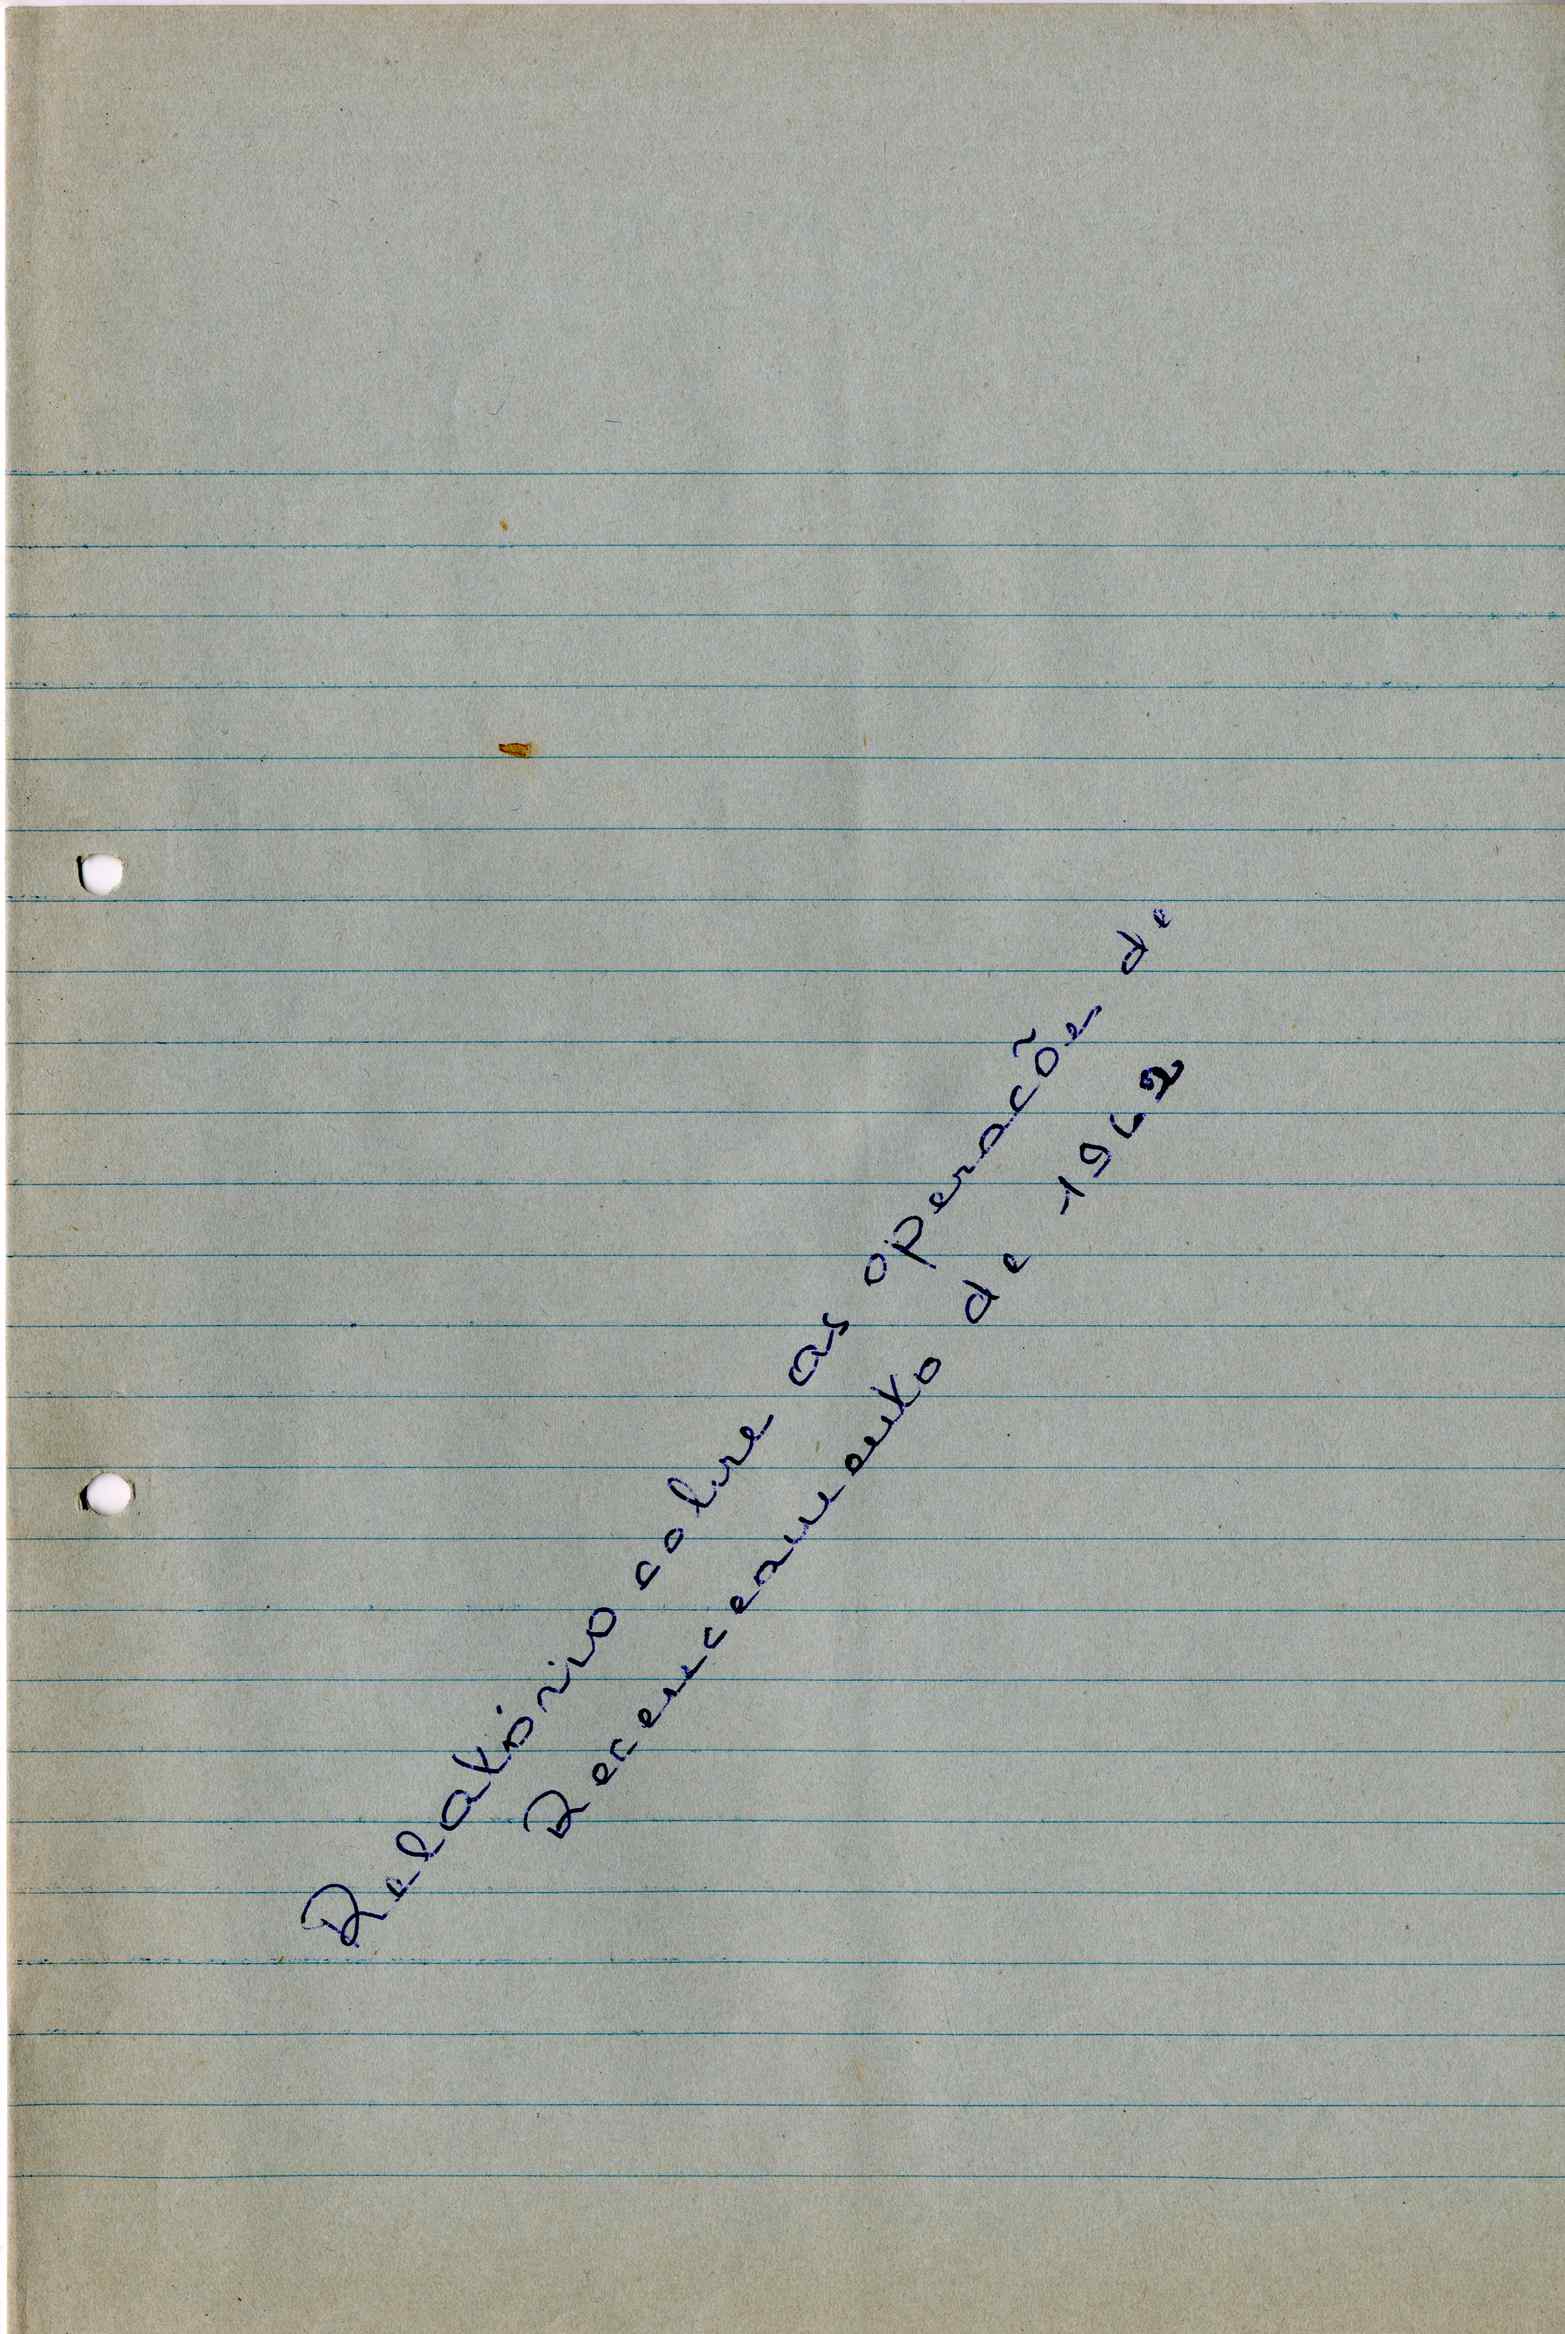 Relatório sobre as operações de
Recenceamento de 1942